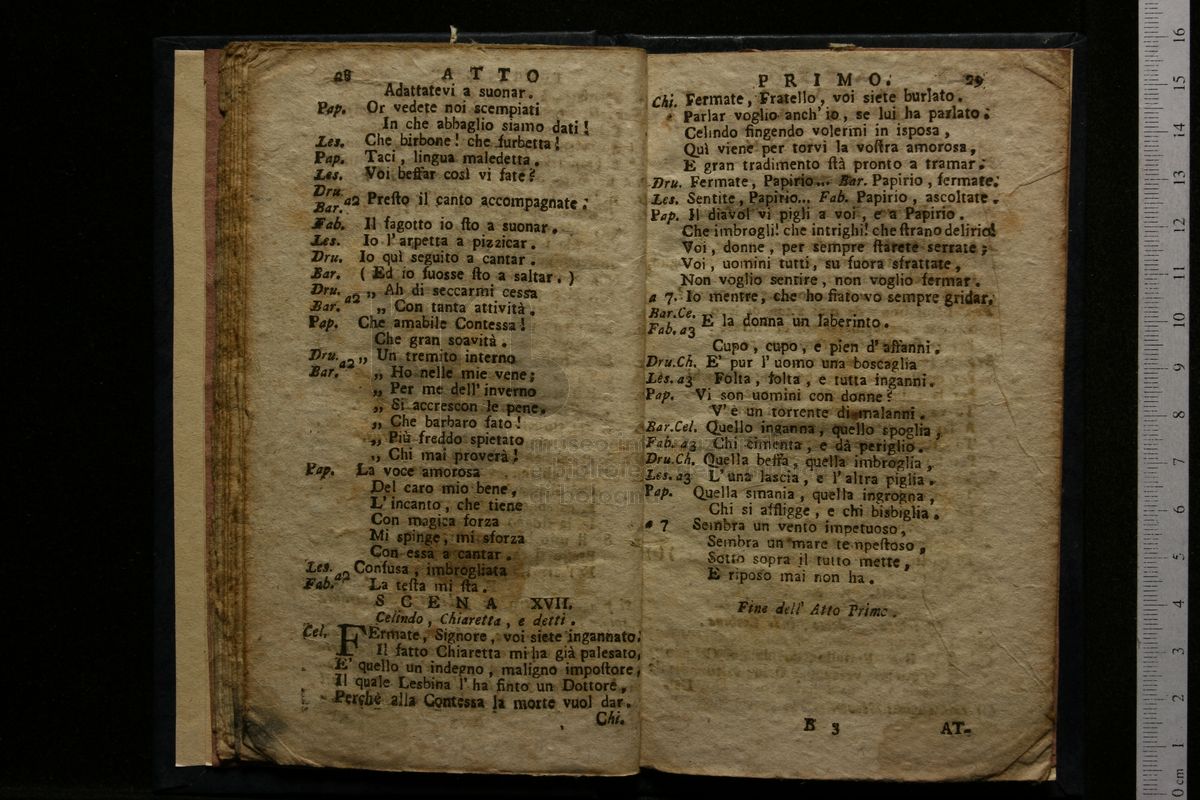 28 ATTO
Adattatevi a suonar.
Pap. Or vedete noi scempiati
In che abbaglio siamo dati!
Les. Che birbone! che furbetta!
Pap. Taci, lingua maledetta.
Les. Voi beffar così vi fate?
Dru.
Bar. a2 Presto il canto accompagnate.
Fab. Il fagotto io sto a suonar.
Les. Io l'arpetta a pizzicar.
Dru. Io quì seguito a cantar.
Bar. (Ed io fuosse sto a saltar.)
Dru. a2 „ Ah di seccarmi cessa
Bar. „ Con tanta attività.
Pap. Che amabile Contessa!
Che gran soavità.
Dru. a2 „ Un tremito interno
Bar. „ Ho nelle mie vene;
„ Per me dell'inverno
„ Si accrescon le pene.
„ Che barbaro fato!
„ Più freddo spietato
„ Chi mai proverà!
Pap. La voce amorosa
Del caro mio bene,
L'incanto, che tiene
Con magica forza
Mi spinge, mi sforza
Con essa a cantar.
Les. a2 Confusa, imbrogliata
Fab. La testa mi sta.
SCENA XVII.
Celindo, Chiaretta, e detti.
Cel. FErmate, Signore, voi siete ingannato.
Il fatto Chiaretta mi ha già palesato,
E' quello un indegno, maligno impostore,
Il quale Lesbina l'ha finto un Dottore,
Perchè alla Contessa la morte vuol dar.
Chi.
PRIMO. 29
Chi. Fermate, Fratello, voi siete burlato.
Parlar voglio anch'io, se lui ha parlato:
Celindo fingendo volermi in isposa,
Quì viene per torvi la vostra amorosa,
E gran tradimento stà pronto a tramar.
Dru. Fermate, Papirio... Bar. Papirio, fermate.
Les. Sentite, Papirio... Fab. Papirio, ascoltate.
Pap. Il diavol vi pigli a voi, e a Papirio.
Che imbrogli! che intrighi! che strano delirio!
Voi, donne, per sempre starete serrate;
Voi, uomini tutti, su fuora sfrattate,
Non voglio sentire, non voglio fermar.
a 7. Io mentre, che ho fiato vo sempre gridar.
Bar.Ce.
Fab. a3 E la donna un laberinto.
Cupo, cupo, e pien d'affanni.
Dru.Ch. E' pur l'uomo una boscaglia
Les. a3 Folta, folta, e tutta inganni.
Pap. Vi son uomini con donne?
V'è un torrente di malanni.
Bar.Cel. Quello inganna, quello spoglia,
Fab. a3 Chi cimenta, e dà periglio.
Dru.Ch. Quella beffa, quella imbroglia,
Les. a3 L'una lascia, e l'altra piglia.
Pap. Quella smania, quella ingrogna,
Chi si affligge, e chi bisbiglia.
a 7 Sembra un vento impetuoso,
Sembra un mare tempestoso,
Sotto sopra il tutto mette,
E riposo mai non ha.
Fine dell' Atto Primo.
B 3 AT-